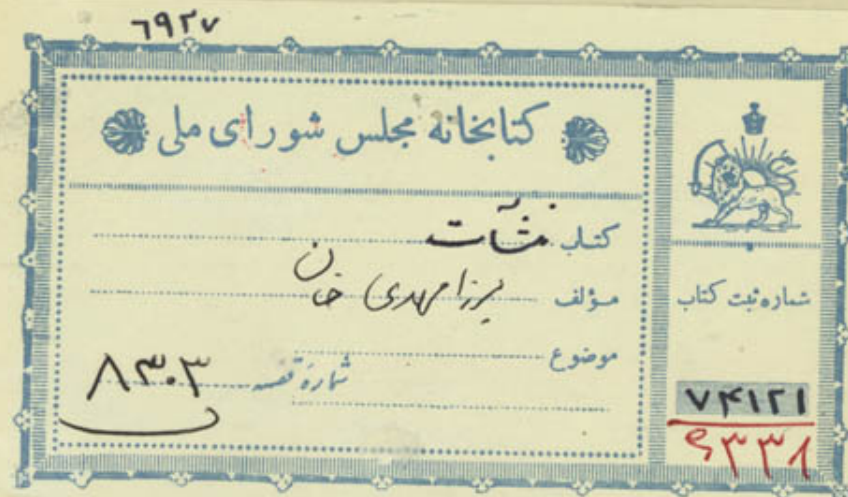 ۶۹۲۷
کتابخانه مجلس شورای ملی
کتاب منشآت
مؤلف میرزا مهدی خان
موضوع
شمارهٔ قفسه ۸۳۰۳
شماره ثبت کتاب
۷۴۱۲۱